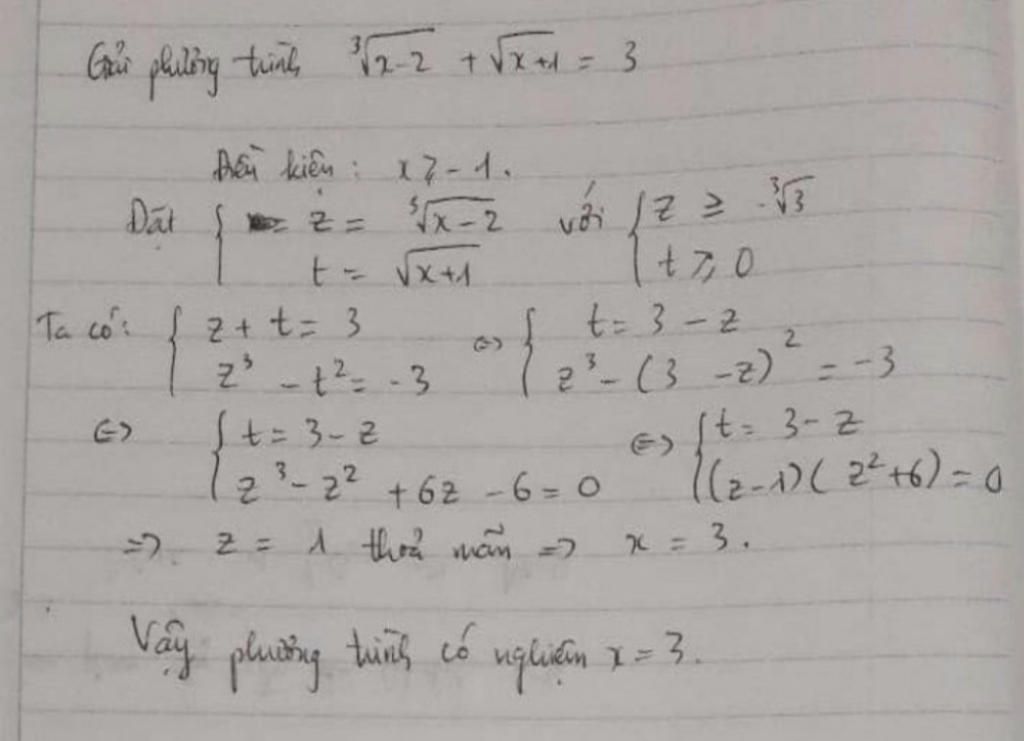 Giải phương trình ∛(x-2) + √(x+1) = 3
Điều kiện: x ≥ -1.
Đặt { z = ∛(x-2) với { z ≥ -∛3
t = √(x+1) t ≥ 0
Ta có: { z + t = 3 <=> { t = 3 - z
z³ - t² = -3 z³ - (3 - z)² = -3
<=> { t = 3 - z <=> { t = 3 - z
z³ - z² + 6z - 6 = 0 (z-1)(z²+6) = 0
=> z = 1 thoả mãn => x = 3.
Vậy phương trình có nghiệm x = 3.